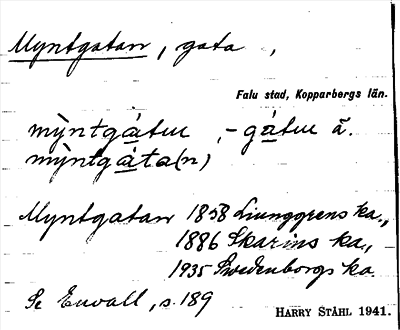 Myntgatan, gata,
Falu stad, Kopparbergs län.
mỳntgátur, -gátur ã.
mỳntgáta(n)
Myntgatan 1858 Ljunggrens ka.,
1886 Skarins ka.,
1935 Swedenborgs ka.
Se Envall, s. 189
HARRY STÅHL 1941.